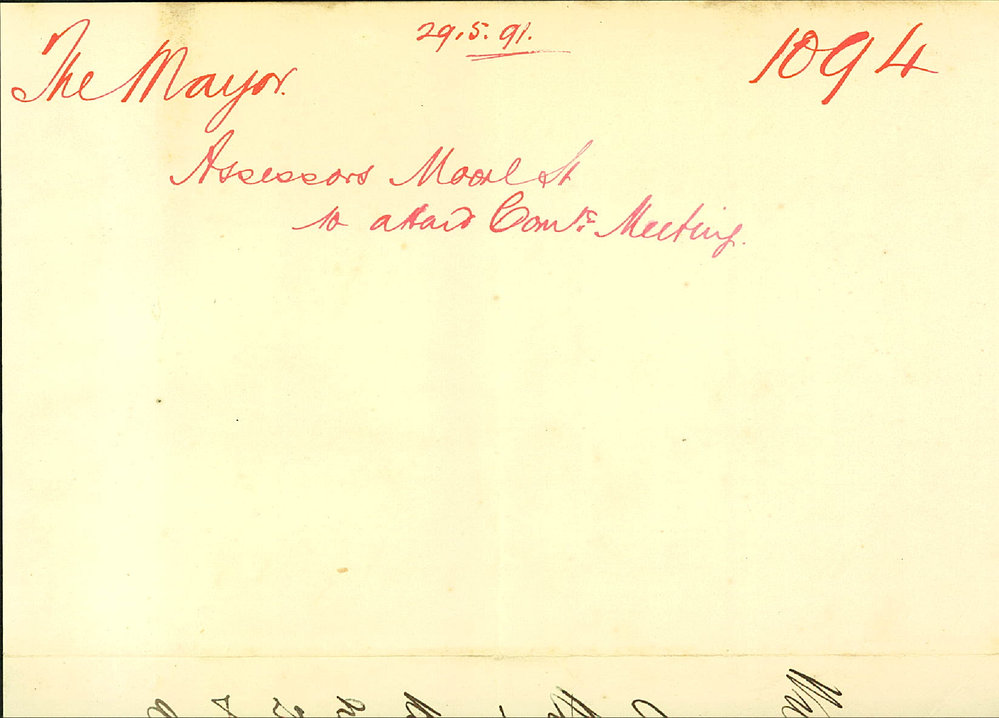 29.5.91.
1094
The Mayor.
Assessors Moore St
to attend Comte Meeting.